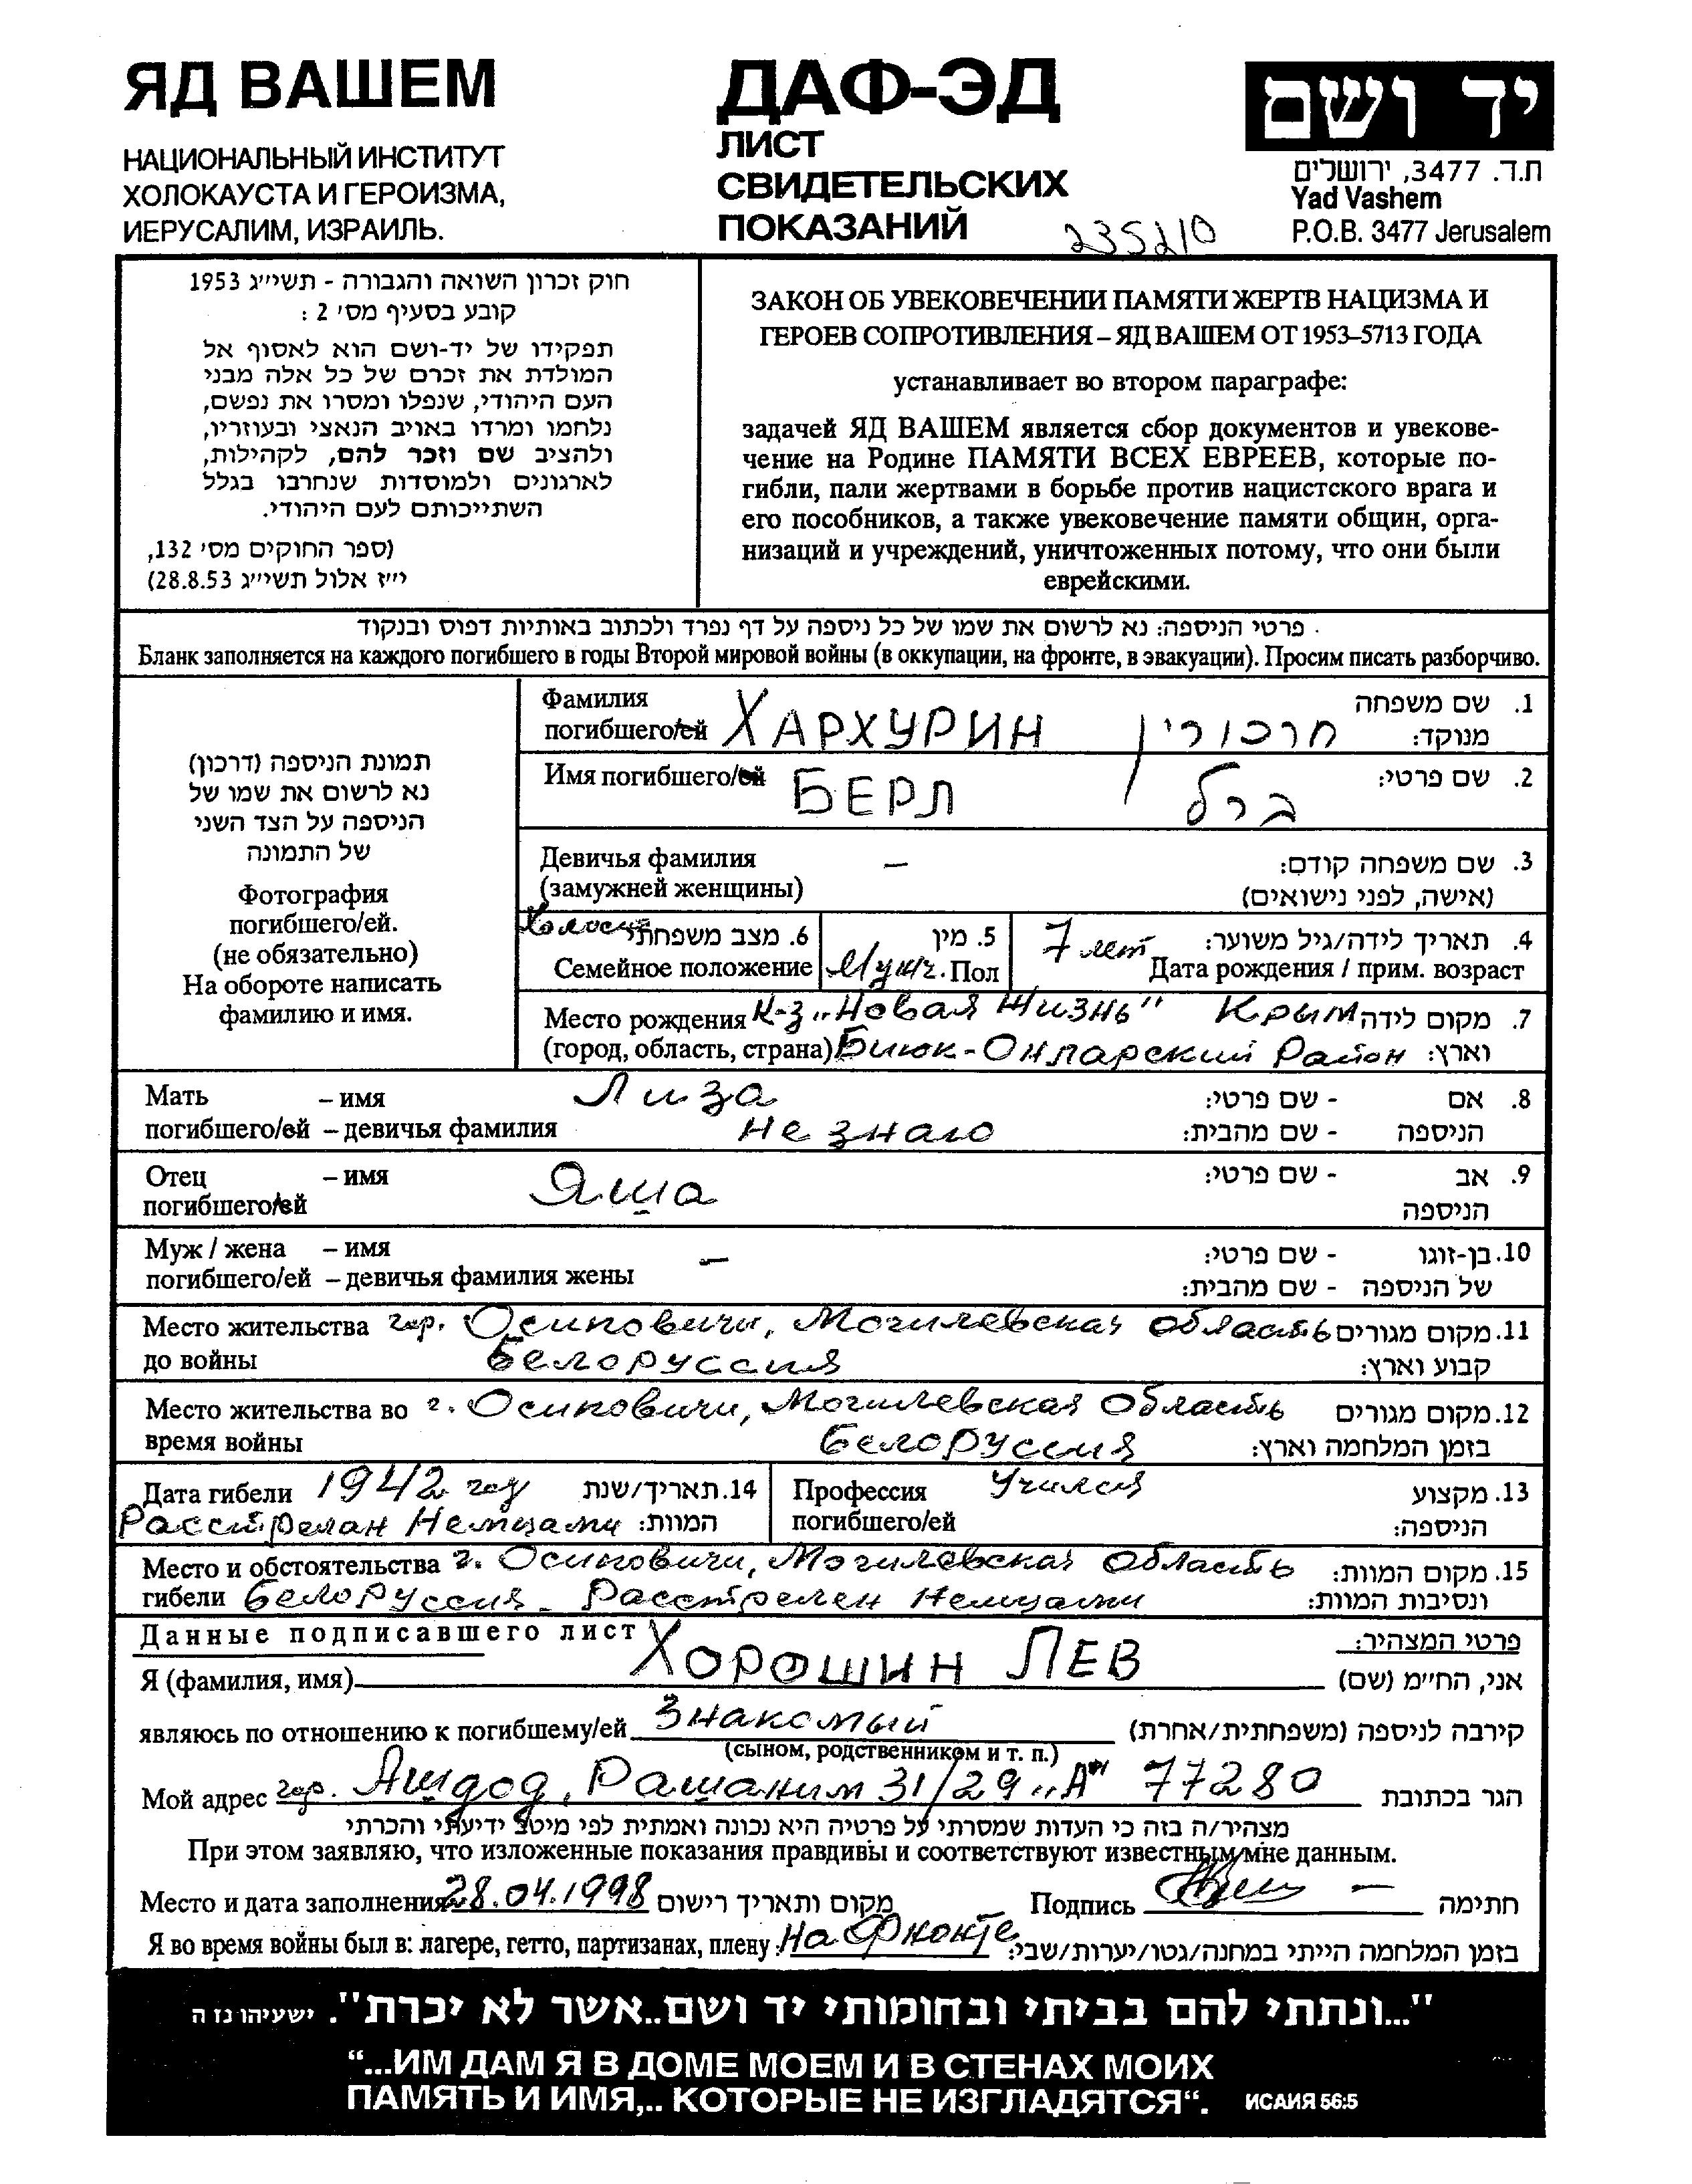 ЯД ВАШЕМ
НАЦИОНАЛЬНЫЙ ИНСТИТУТ
ХОЛОКАУСТА И ГЕРОИЗМА,
ИЕРУСАЛИМ, ИЗРАИЛЬ.
ДАФ-ЭД
ЛИСТ
СВИДЕТЕЛЬСКИХ
ПОКАЗАНИЙ
235210
יד ושם
ת.ד. 3477, ירושלים
Yad Vashem
P.O.B. 3477 Jerusalem
חוק זכרון השואה והגבורה - תשי״ג 1953
קובע בסעיף מס׳ 2 :
תפקידו של יד-ושם הוא לאסוף אל
המולדת את זכרם של כל אלה מבני
העם היהודי, שנפלו ומסרו את נפשם,
נלחמו ומרדו באויב הנאצי ובעוזריו,
ולהציב שם וזכר להם, לקהילות,
לארגונים ולמוסדות שנחרבו בגלל
השתייכותם לעם היהודי.
(ספר החוקים מס׳ 132,
י״ז אלול תשי״ג 28.8.53)
ЗАКОН ОБ УВЕКОВЕЧЕНИИ ПАМЯТИ ЖЕРТВ НАЦИЗМА И
ГЕРОЕВ СОПРОТИВЛЕНИЯ – ЯД ВАШЕМ ОТ 1953–5713 ГОДА
устанавливает во втором параграфе:
задачей ЯД ВАШЕМ является сбор документов и увекове-
чение на Родине ПАМЯТИ ВСЕХ ЕВРЕЕВ, которые по-
гибли, пали жертвами в борьбе против нацистского врага и
его пособников, а также увековечение памяти общин, орга-
низаций и учреждений, уничтоженных потому, что они были
еврейскими.
פרטי הניספה: נא לרשום את שמו של כל ניספה על דף נפרד ולכתוב באותיות דפוס ובנקוד
Бланк заполняется на каждого погибшего в годы Второй мировой войны (в оккупации, на фронте, в эвакуации). Просим писать разборчиво.
תמונת הניספה (דרכון)
נא לרשום את שמו של
הניספה על הצד השני
של התמונה
Фотография
погибшего/ей.
(не обязательно)
На обороте написать
фамилию и имя.
Фамилия 1. שם משפחה
погибшего/ей ХАРХУРИН חרכורין מנוקד:
Имя погибшего/ей БЕРЛ ברל 2. שם פרטי:
Девичья фамилия – 3. שם משפחה קודם:
(замужней женщины) (אישה, לפני נישואים)
Холост 6. מצב משפחתי 5. מין 7 лет 4. תאריך לידה/גיל משוער:
Семейное положение Мужч. Пол Дата рождения / прим. возраст
Место рождения К-з „Новая Жизнь" Крым 7. מקום לידה
(город, область, страна) Биюк-Онларский Район וארץ:
Мать – имя Лиза 8. אם - שם פרטי:
погибшего/ей – девичья фамилия не знаю הניספה - שם מהבית:
Отец – имя Яша 9. אב - שם פרטי:
погибшего/ей הניספה
Муж / жена – имя – 10. בן-זוגו - שם פרטי:
погибшего/ей – девичья фамилия жены של הניספה - שם מהבית:
Место жительства гор. Осиповичи, Могилевская область 11. מקום מגורים
до войны Белоруссия קבוע וארץ:
Место жительства во г. Осиповичи, Могилевская Область 12. מקום מגורים
время войны Белоруссия בזמן המלחמה וארץ:
Дата гибели 1942 год 14. תאריך/שנת
Расстрелян Немцами המוות:
Профессия Учился 13. מקצוע
погибшего/ей הניספה:
Место и обстоятельства г. Осиповичи, Могилевская Область 15. מקום המוות:
гибели Белоруссия - Расстрелен Немцами ונסיבות המוות:
Данные подписавшего лист פרטי המצהיר:
Я (фамилия, имя) ХОРОШИН ЛЕВ אני, החי״מ (שם)
являюсь по отношению к погибшему/ей Знакомый קירבה לניספה (משפחתית/אחרת)
(сыном, родственником и т. п.)
Мой адрес гор. Ашдод, Рашаним 31/29 „А" 77280 הגר בכתובת
מצהיר/ה בזה כי העדות שמסרתי על פרטיה היא נכונה ואמתית לפי מיטב ידיעתי והכרתי
При этом заявляю, что изложенные показания правдивы и соответствуют известным мне данным.
Место и дата заполнения 28.04.1998 מקום ותאריך רישום Подпись חתימה
Я во время войны был в: лагере, гетто, партизанах, плену: На Фронте בזמן המלחמה הייתי במחנה/גטו/יערות/שבי:
"...ונתתי להם בביתי ובחומותי יד ושם..אשר לא יכרת". ישעיהו נז ה
“...ИМ ДАМ Я В ДОМЕ МОЕМ И В СТЕНАХ МОИХ
ПАМЯТЬ И ИМЯ,.. КОТОРЫЕ НЕ ИЗГЛАДЯТСЯ“. ИСАИЯ 56:5